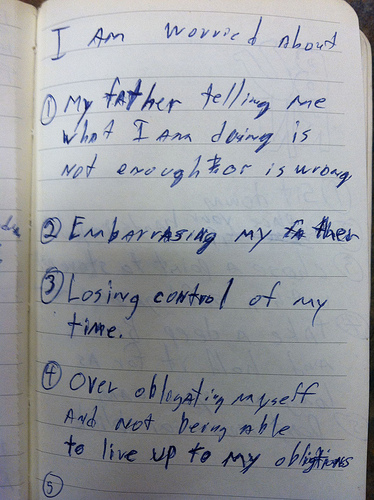 I Am Worried About
① My father telling me
what I Am doing is
not enough or is wrong
② Embarrasing my father
③ Losing control of my
time.
④ Over obligating myself
And not being able
to live up to my obligations
⑤